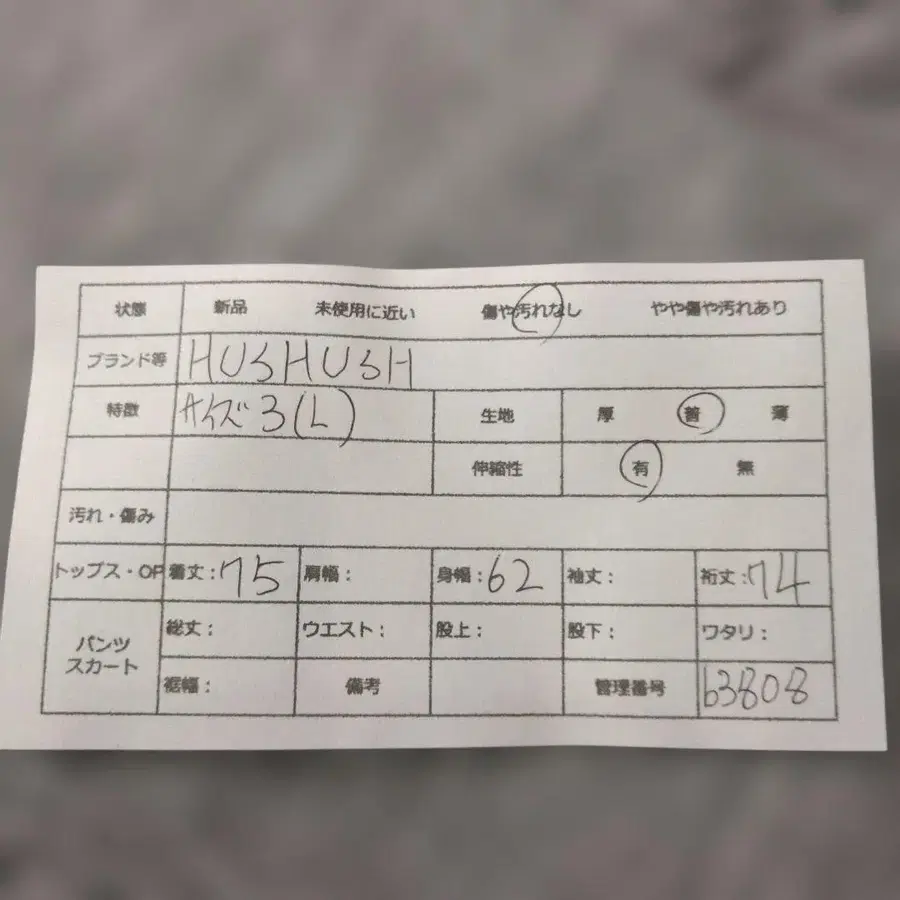 状態 新品 未使用に近い 傷や汚れなし やや傷や汚れあり
ブランド等 HUSHUSH
特徴 サイズ3(L) 生地 厚 普 薄
伸縮性 有 無
汚れ・傷み
トップス・OP 着丈:75 肩幅: 身幅:62 袖丈: 裄丈:74
パンツ
スカート
総丈: ウエスト: 股上: 股下: ワタリ:
裾幅: 備考 管理番号 63808